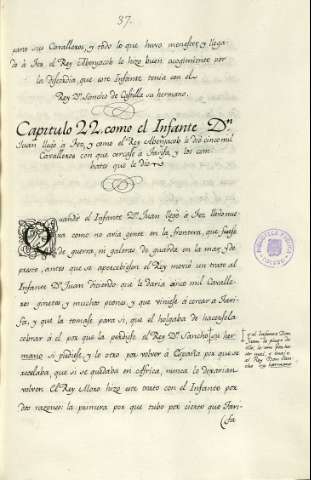 37.
para sus Cavalleros, y todo lo que huvo menester, y llega-
do à Fez, el Rey Abenjacob le hizo buen acogimiento por
la discordia, que este Infante tenia con el
Rey Dn. Sancho de Castilla su hermano.
Capitulo 22. como el Infante Dn.
Juan llegò à Fez, y como el Rey Abenjacob le diò cinco mil
Cavalleros con que cercase à Tarifa, y los com-
bates que le diò
Quando el Infante Dn. Juan llegò à Fez
como no avia gente en la frontera, que fuese
de guerra, ni galeras de guarda en la mar, y de
presto, antes que se apercebiesen el Rey moviò un trato al
Infante Dn. Juan diciendo que le daria cinco mil Cavalle-
ros ginetes y muchos peones, y que viniese à cercar à Tari-
fa, y que la tomase para si, que el holgaba de hacersela
cobrar à el por que la perdiese el Rey Dn. Sancho su her-
mano si pudiese, y lo otro por volver à España por que se
recelaba, que si se quedaba en Africa, nunca lo dexarian
volver. El Rey Moro hizo este trato con el Infante por
dos razones: la primera por que tubo por cierto que Tari-
(fa
y el Infante Don
Juan
el Rey Dn. San-
cho su hermano